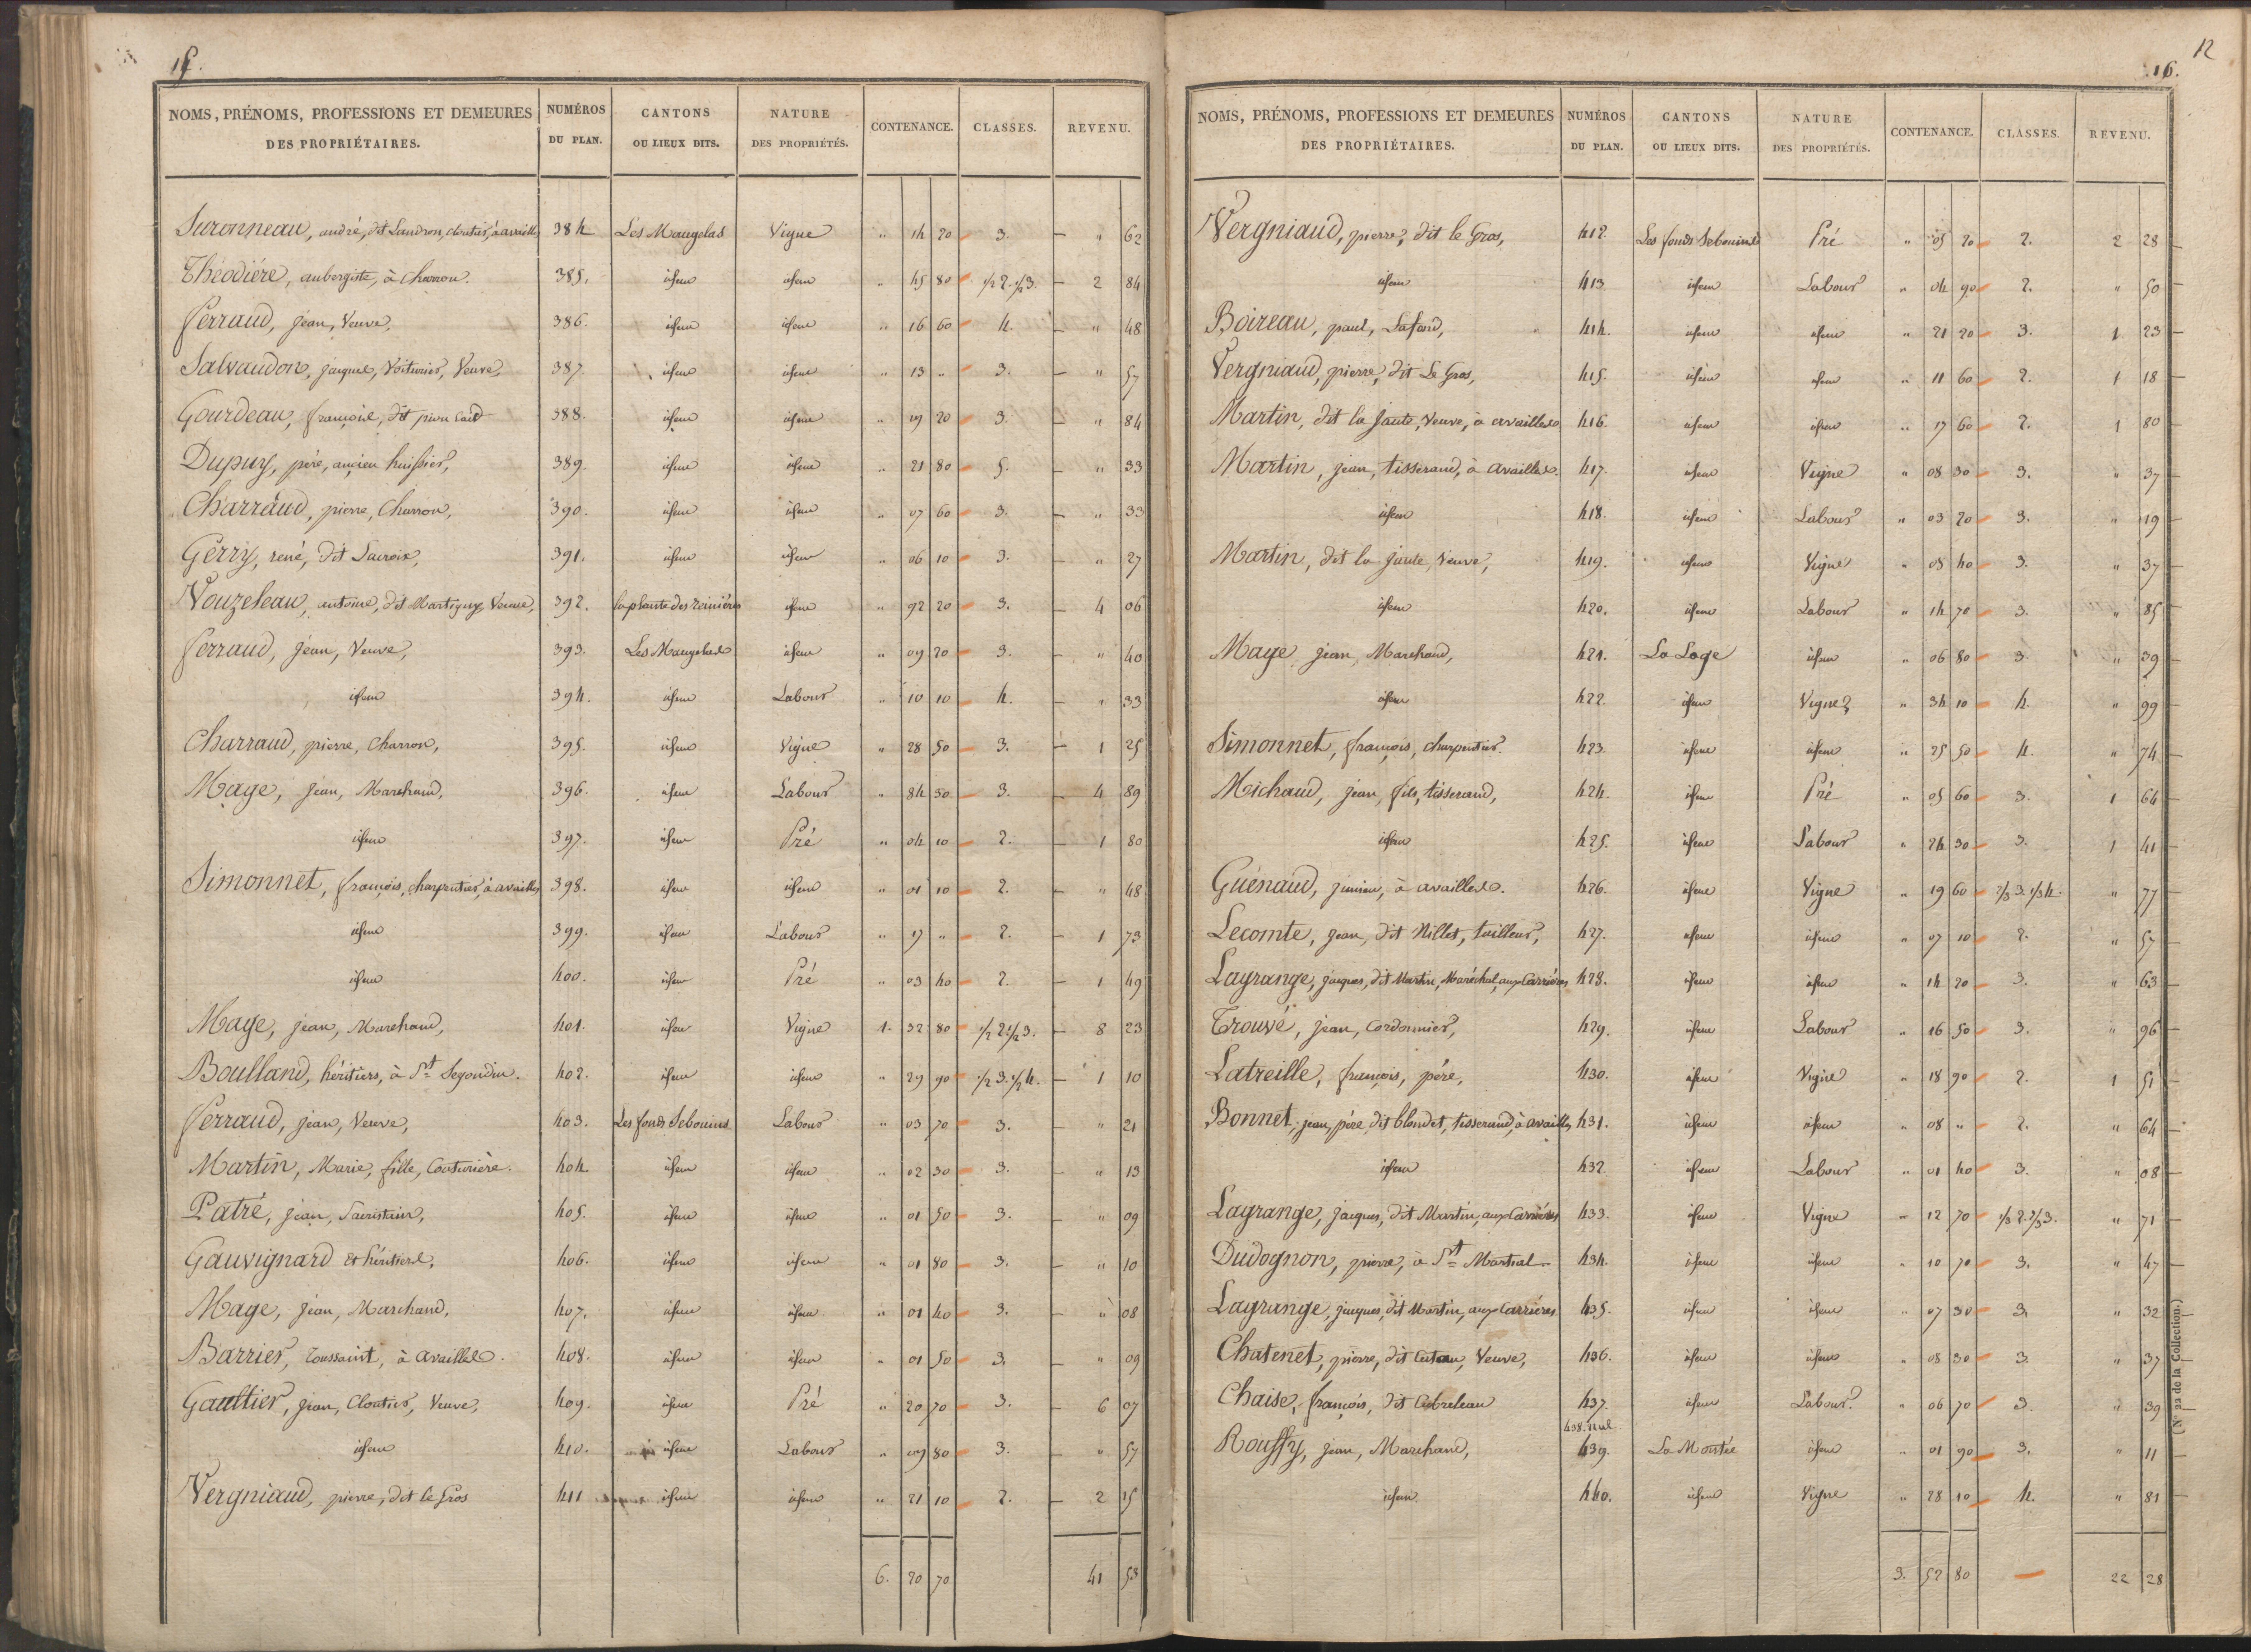 15.
NOMS, PRÉNOMS, PROFESSIONS ET DEMEURES DES PROPRIÉTAIRES. NUMÉROS DU PLAN. CANTONS OU LIEUX DITS. NATURE DES PROPRIÉTÉS. CONTENANCE. CLASSES. REVENU.
Suronneau, andré, dit Landron, cloutier, à availles 384 Les Maugelas Vigne " 14 20 3. " 62
Théodière, aubergiste, à charron. 385. idem idem " 45 80 1/2 2. 1/2 3. 2 84
Ferraud, jean, Veuve, 386. idem idem " 16 60 4. " 48
Salvaudon, jacques, Voiturier, Veuve, 387 idem idem " 13 " 3. " 57
Gourdeau, françois, dit 388. idem idem " 19 20 3. " 84
Dupuy, père, ancien huissier, 389. idem idem " 21 80 5. " 33
Charraud, pierre, Charron, 390. idem idem " 07 60 3. " 33
Gerry, rené, dit Lacroix, 391. idem idem " 06 10 3. " 27
Vouzeleau, antoine, dit Martigny, Veuve, 392. la plante des reinières idem " 92 20 3. 4 06
Ferraud, jean, Veuve, 393. Les Maugelas idem " 09 20 3. " 40
idem 394. idem Labour " 10 10 4. " 33
Charraud, pierre, Charron, 395. idem Vigne " 28 50 3. 1 25
Mage, jean, Marchand, 396. idem Labour " 84 30 3. 4 89
idem 397. idem Pré " 04 10 2. 1 80
Simonnet, françois, charpentier, à availles 398. idem idem " 01 10 2. " 48
idem 399. idem Labour " 17 " 2. 1 73
idem 400. idem Pré " 03 40 2. 1 49
Mage, jean, Marchand, 401. idem Vigne 1. 32 80 1/2 2 1/2 3. 8 23
Boulland, héritiers, à St Segondin. 402. idem idem " 29 90 1/2 3. 1/2 4. 1 10
Ferraud, jean, Veuve, 403. Les fonds Sebouins Labour " 03 70 3. " 21
Martin, Marie, fille, Couturière. 404 idem idem " 02 30 3. " 13
Patré, jean, Sacristain, 405. idem idem " 01 50 3. " 09
Gauvignard et héritiers, 406. idem idem " 01 80 3. " 10
Mage, jean, Marchand, 407. idem idem " 01 40 3. " 08
Barrier, toussaint, à availles. 408. idem idem " 01 50 3. " 09
Gaultier, jean, Cloutier, Veuve, 409. idem Pré " 20 70 3. 6 07
idem 410. idem Labour " 09 80 3. " 57
Vergniaud, pierre, dit le Gros 411 idem idem " 21 10 2. 2 15
6. 20 70 41 53
12
16.
NOMS, PRÉNOMS, PROFESSIONS ET DEMEURES DES PROPRIÉTAIRES. NUMÉROS DU PLAN. CANTONS OU LIEUX DITS. NATURE DES PROPRIÉTÉS. CONTENANCE. CLASSES. REVENU.
Vergniaud, pierre, dit le Gros, 412. Les fonds Sebouins Pré " 05 20 2. 2 28
idem 413 idem Labour " 04 90 2. " 50
Boireau, paul, Lafond, 414. idem idem " 21 20 3. 1 23
Vergniaud, pierre, dit Le Gros, 415. idem idem " 11 60 2. 1 18
Martin, dit la jaute, Veuve, à availles 416. idem idem " 17 60 2. 1 80
Martin, jean, tisserand, à availles. 417. idem Vigne " 08 30 3. " 37
idem 418. idem Labour " 03 20 3. " 19
Martin, dit la jaute, Veuve, 419. idem Vigne " 08 40 3. " 37
idem 420. idem Labour " 14 70 3. " 85
Mage jean, Marchand, 421. La Loge idem " 06 80 3. " 39
idem 422. idem Vigne " 34 10 4. " 99
Simonnet, françois, charpentier. 423. idem idem " 25 50 4. " 74
Michaud, jean, fils, tisserand, 424. idem Pré " 05 60 3. 1 64
idem 425. idem Labour " 24 30 3. 1 41
Guénaud, junien, à availles. 426. idem Vigne " 19 60 2/3 3. 1/3 4. " 77
Lecomte, jean, dit Nillet, tailleur, 427. idem idem " 07 10 2. " 57
Lagrange, jacques, dit Martin, Maréchal, aux Carrières 428. idem idem " 14 20 3. " 63
Trouvé, jean, Cordonnier, 429. idem Labour " 16 50 3. " 96
Latreille, françois, père, 430. idem Vigne " 18 90 2. 1 51
Bonnet, jean, père dit blondet, tisserand, à availles 431. idem idem " 08 " 2. " 64
idem 432 idem Labour " 01 40 3. " 08
Lagrange, jacques, dit Martin, aux Carrières 433. idem Vigne " 12 70 1/3 2. 2/3 3. " 71
Dudognon, pierre, à St Martial 434. idem idem " 10 70 3. " 47
Lagrange, jacques, dit Martin, aux Carrières. 435. idem idem " 07 30 3. " 32
Chatenet, pierre, dit Veuve, 436. idem idem " 08 30 3. " 37
Chaise, françois, dit 437. idem Labour " 06 70 3. " 39
438. nul
Rouffy, jean, Marchand, 439. La Montée idem " 01 90 3. " 11
idem 440. idem Vigne " 28 10 4. " 81
3. 52 80 22 28
(N° 22 de la Collection.)